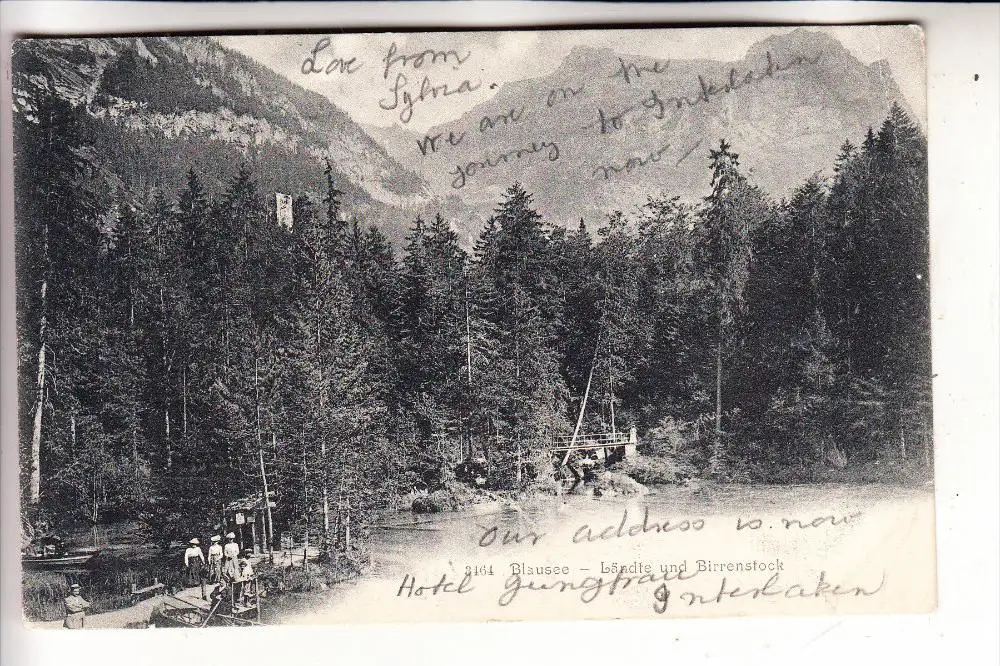 Love from
Sylvia.
We are on the
journey to Interlaken
now —
Our address is now
3164 Blausee – Ländte und Birrenstock
Hotel Jungfrau
Interlaken